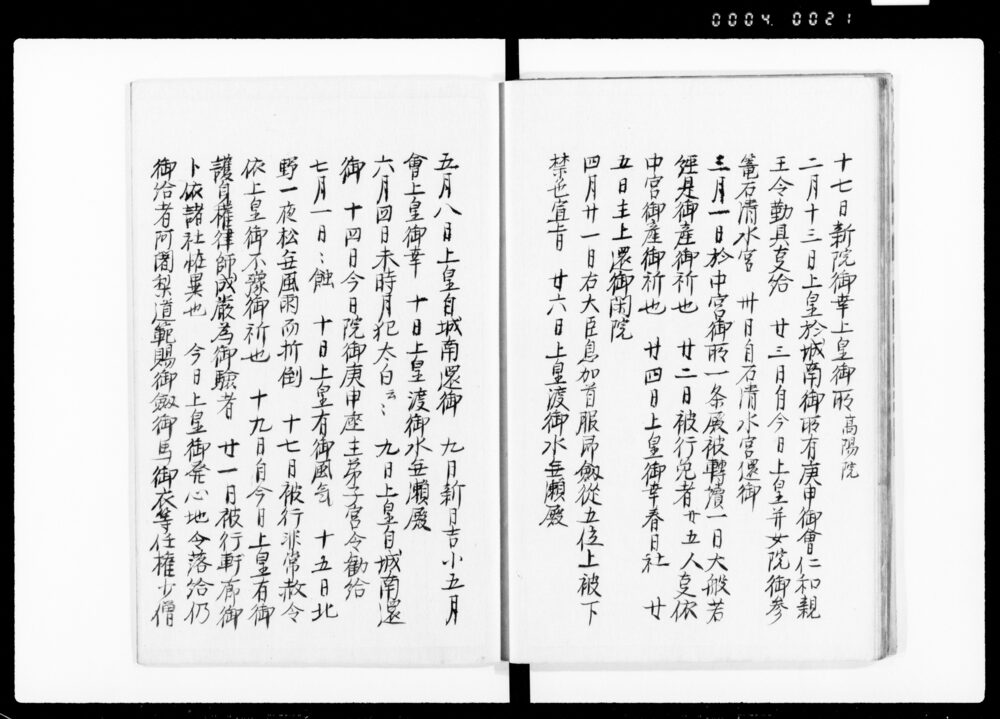 0004 0021
十七日新院御幸上皇御所高陽院
二月十三日上皇於城南御所有庚申御會仁和親
王令勤具支給　廿三日自今日上皇并女院御参
篭石清水宮　卅日自石清水宮還御
三月一日於中宮御所一条殿被轉讀一日大般若
經是御産御祈也　廿二日被行免者廿五人是依
中宮御産御祈也　廿四日上皇御幸春日社　廿
五日主上還御閑院
四月廿一日右大臣息加首服昂劔從五位上被下
禁色宣旨　廿六日上皇渡御水無瀬殿
五月八日上皇自城南還御　九日新日吉小五月
會上皇御幸　十日上皇渡御水無瀬殿
六月四日未時月犯太白云々　九日上皇自城南還
御　十四日今日院御庚申座主弟子宮令勤給
七月一日々蝕　十日上皇有御風気　十五日北
野一夜松無風雨而折倒　十七日被行非常赦令
依上皇御不豫御祈也　十九日自今日上皇有御
護身権律師成厳為御驗者　廿一日被行軒廊御
卜依諸社恠異也　今日上皇御発心地令落給仍
御給者阿闍梨道範賜御劔御馬御衣等任権少僧